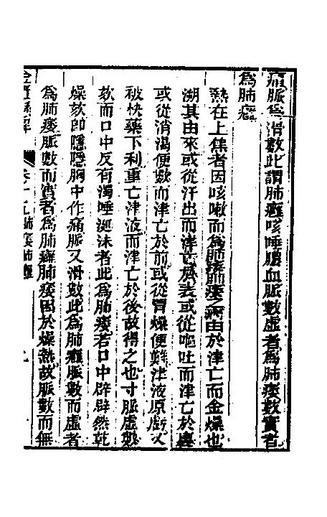 燥脈反滑數此謂肺癰咳唾膿血脈數虛者為肺痿數實者
為肺癰
熱在上焦者因咳嗽而為肺痿肺痿之病由於津亡而金燥也
溯其由來或從汗出而津亡於表或從嘔吐而津亡於裏
或從消渴便數而津亡於前或從胃燥便難津液原虧又
被快藥下利重亡津液而津亡於後故得之也寸脈虛數
欬而口中反有濁唾涎沫者此為肺痿若口中辟辟然乾
燥欬卽隱隱胸中作痛脈又滑數此為肺癰脈數而虛者
為肺痿脈數而實者為肺癰肺痿因於燥熱故脈數而無
肺痿肺癰
九